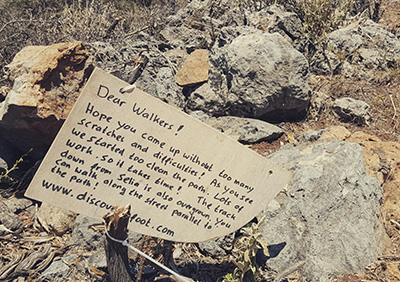 Dear Walkers!
Hope you came up without too many
scratches and difficulties! As you see
we started too clean the path. Lots of
work, so it takes time! The track
down from Selia is also overgrown, you
can walk along the street parallel to
the path!
www.discoveronfoot.com